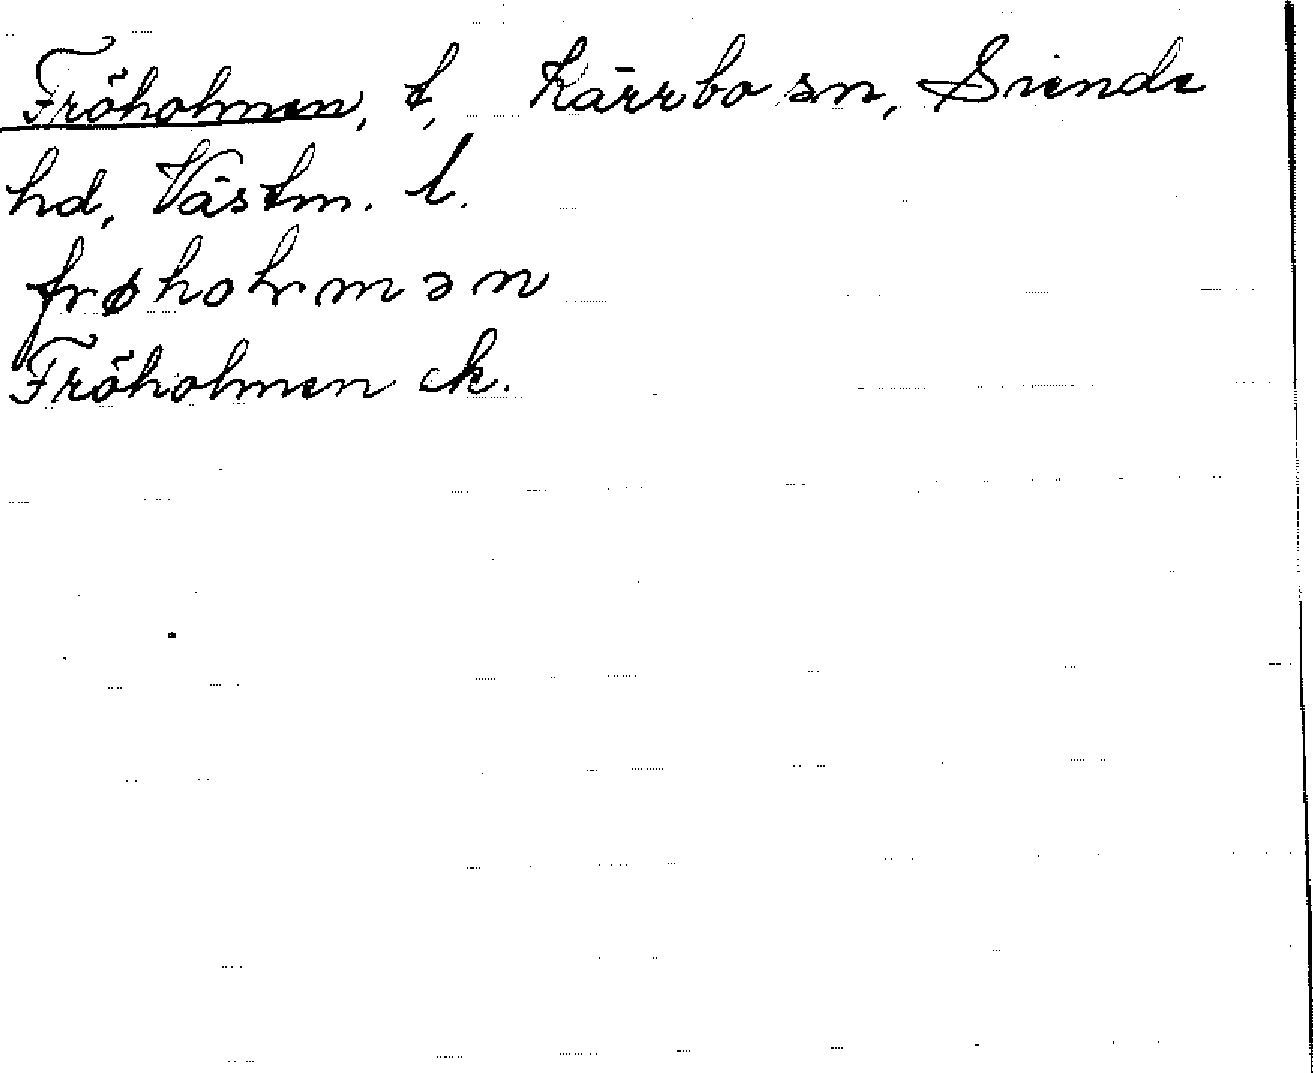 Fröholmen, t, Kärrbo sn, Siende
hd, Västm. l.
frøholmən
Fröholmen ek.